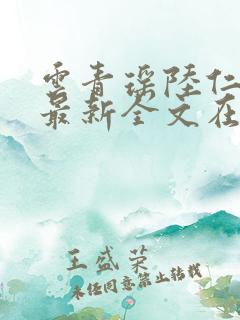 云青瑶陆仁
最新全文在
王盛荣
未经同意禁止转载